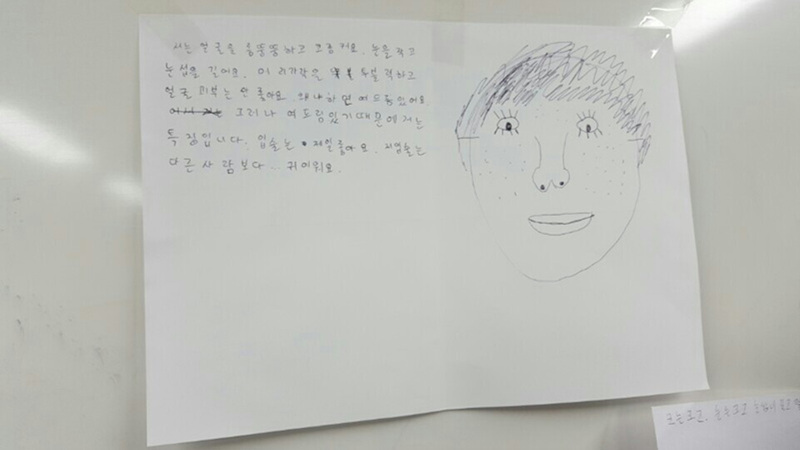 저는 얼굴을 뚱뚱하고 조금 커요. 눈을 작고
눈썹을 길어요. 이 머리가락은 두껍하고
얼굴 피부는 안 좋아요. 왜냐하면 여드름 있어요
그러나 여드림 있기 때문에 저는
특징입니다. 입술는 제일 좋아요. 저 입술는
다른 사람보다... 귀이워요.
크는크고.